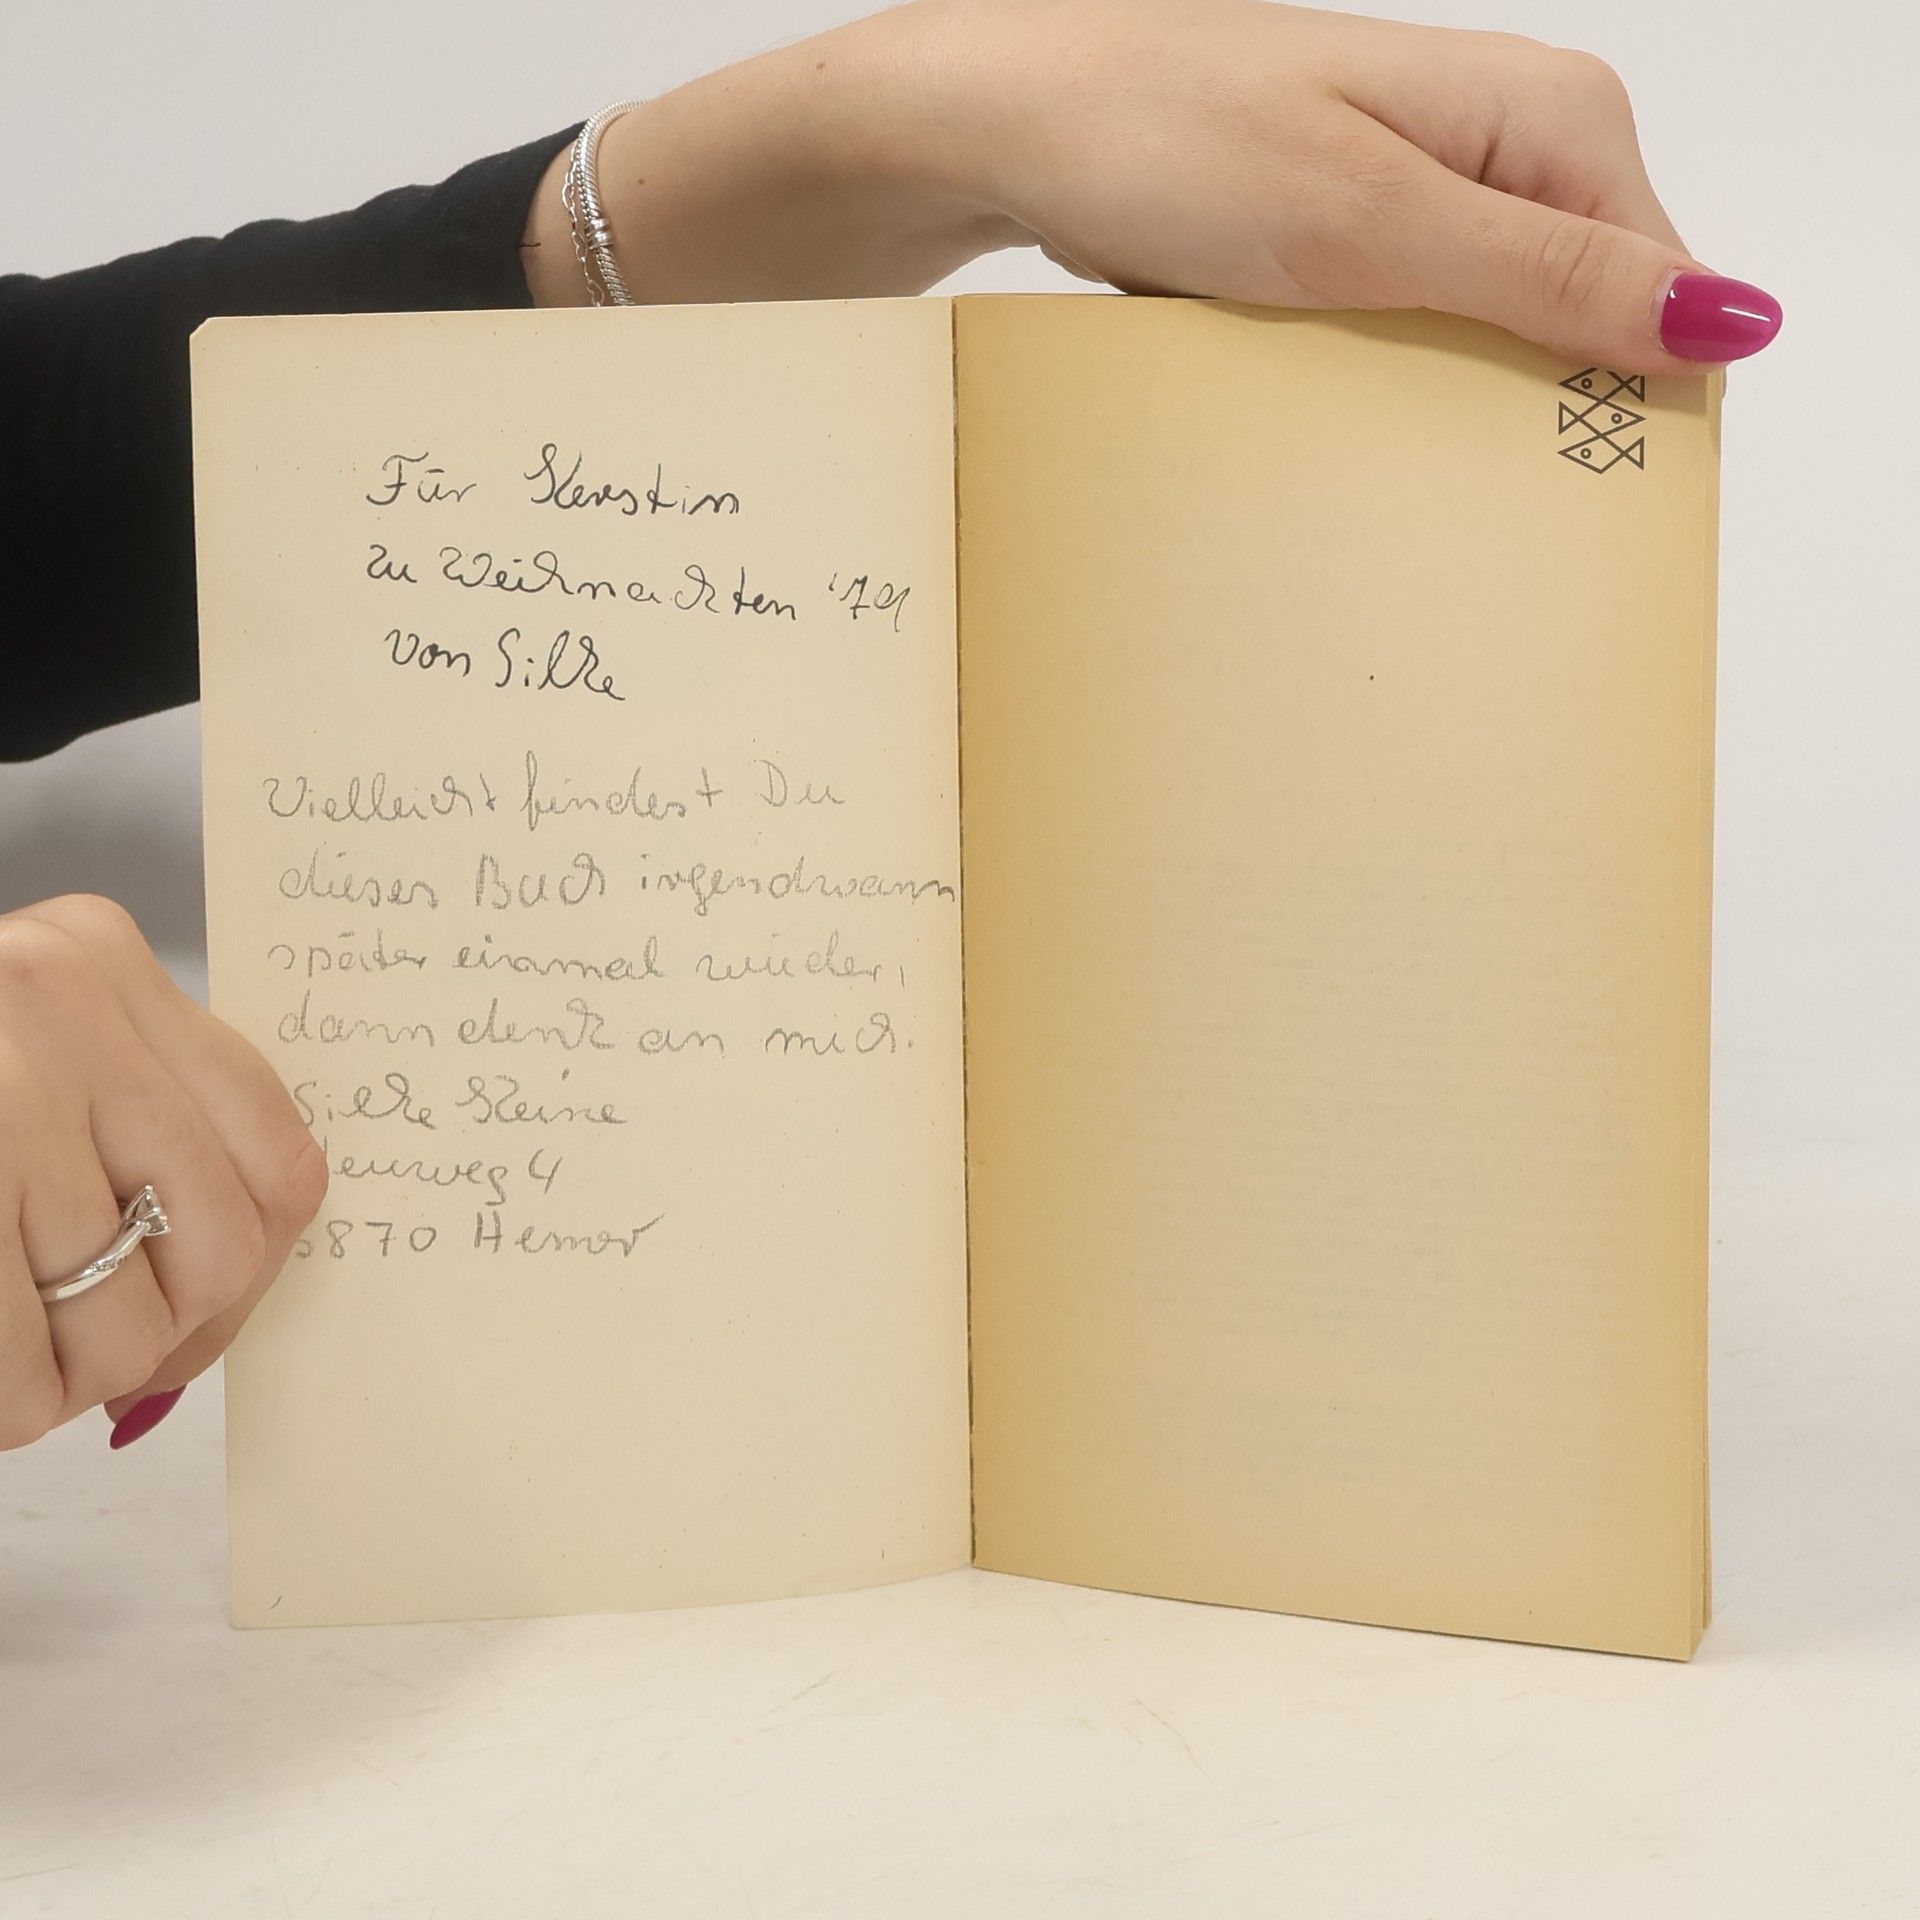 Für Kerstin
zu Weihnachten '79
von Silke
Vielleicht findest Du
dieses Buch irgendwann
später einmal wieder,
dann denk an mich.
Silke
weg 4
870 Hemer